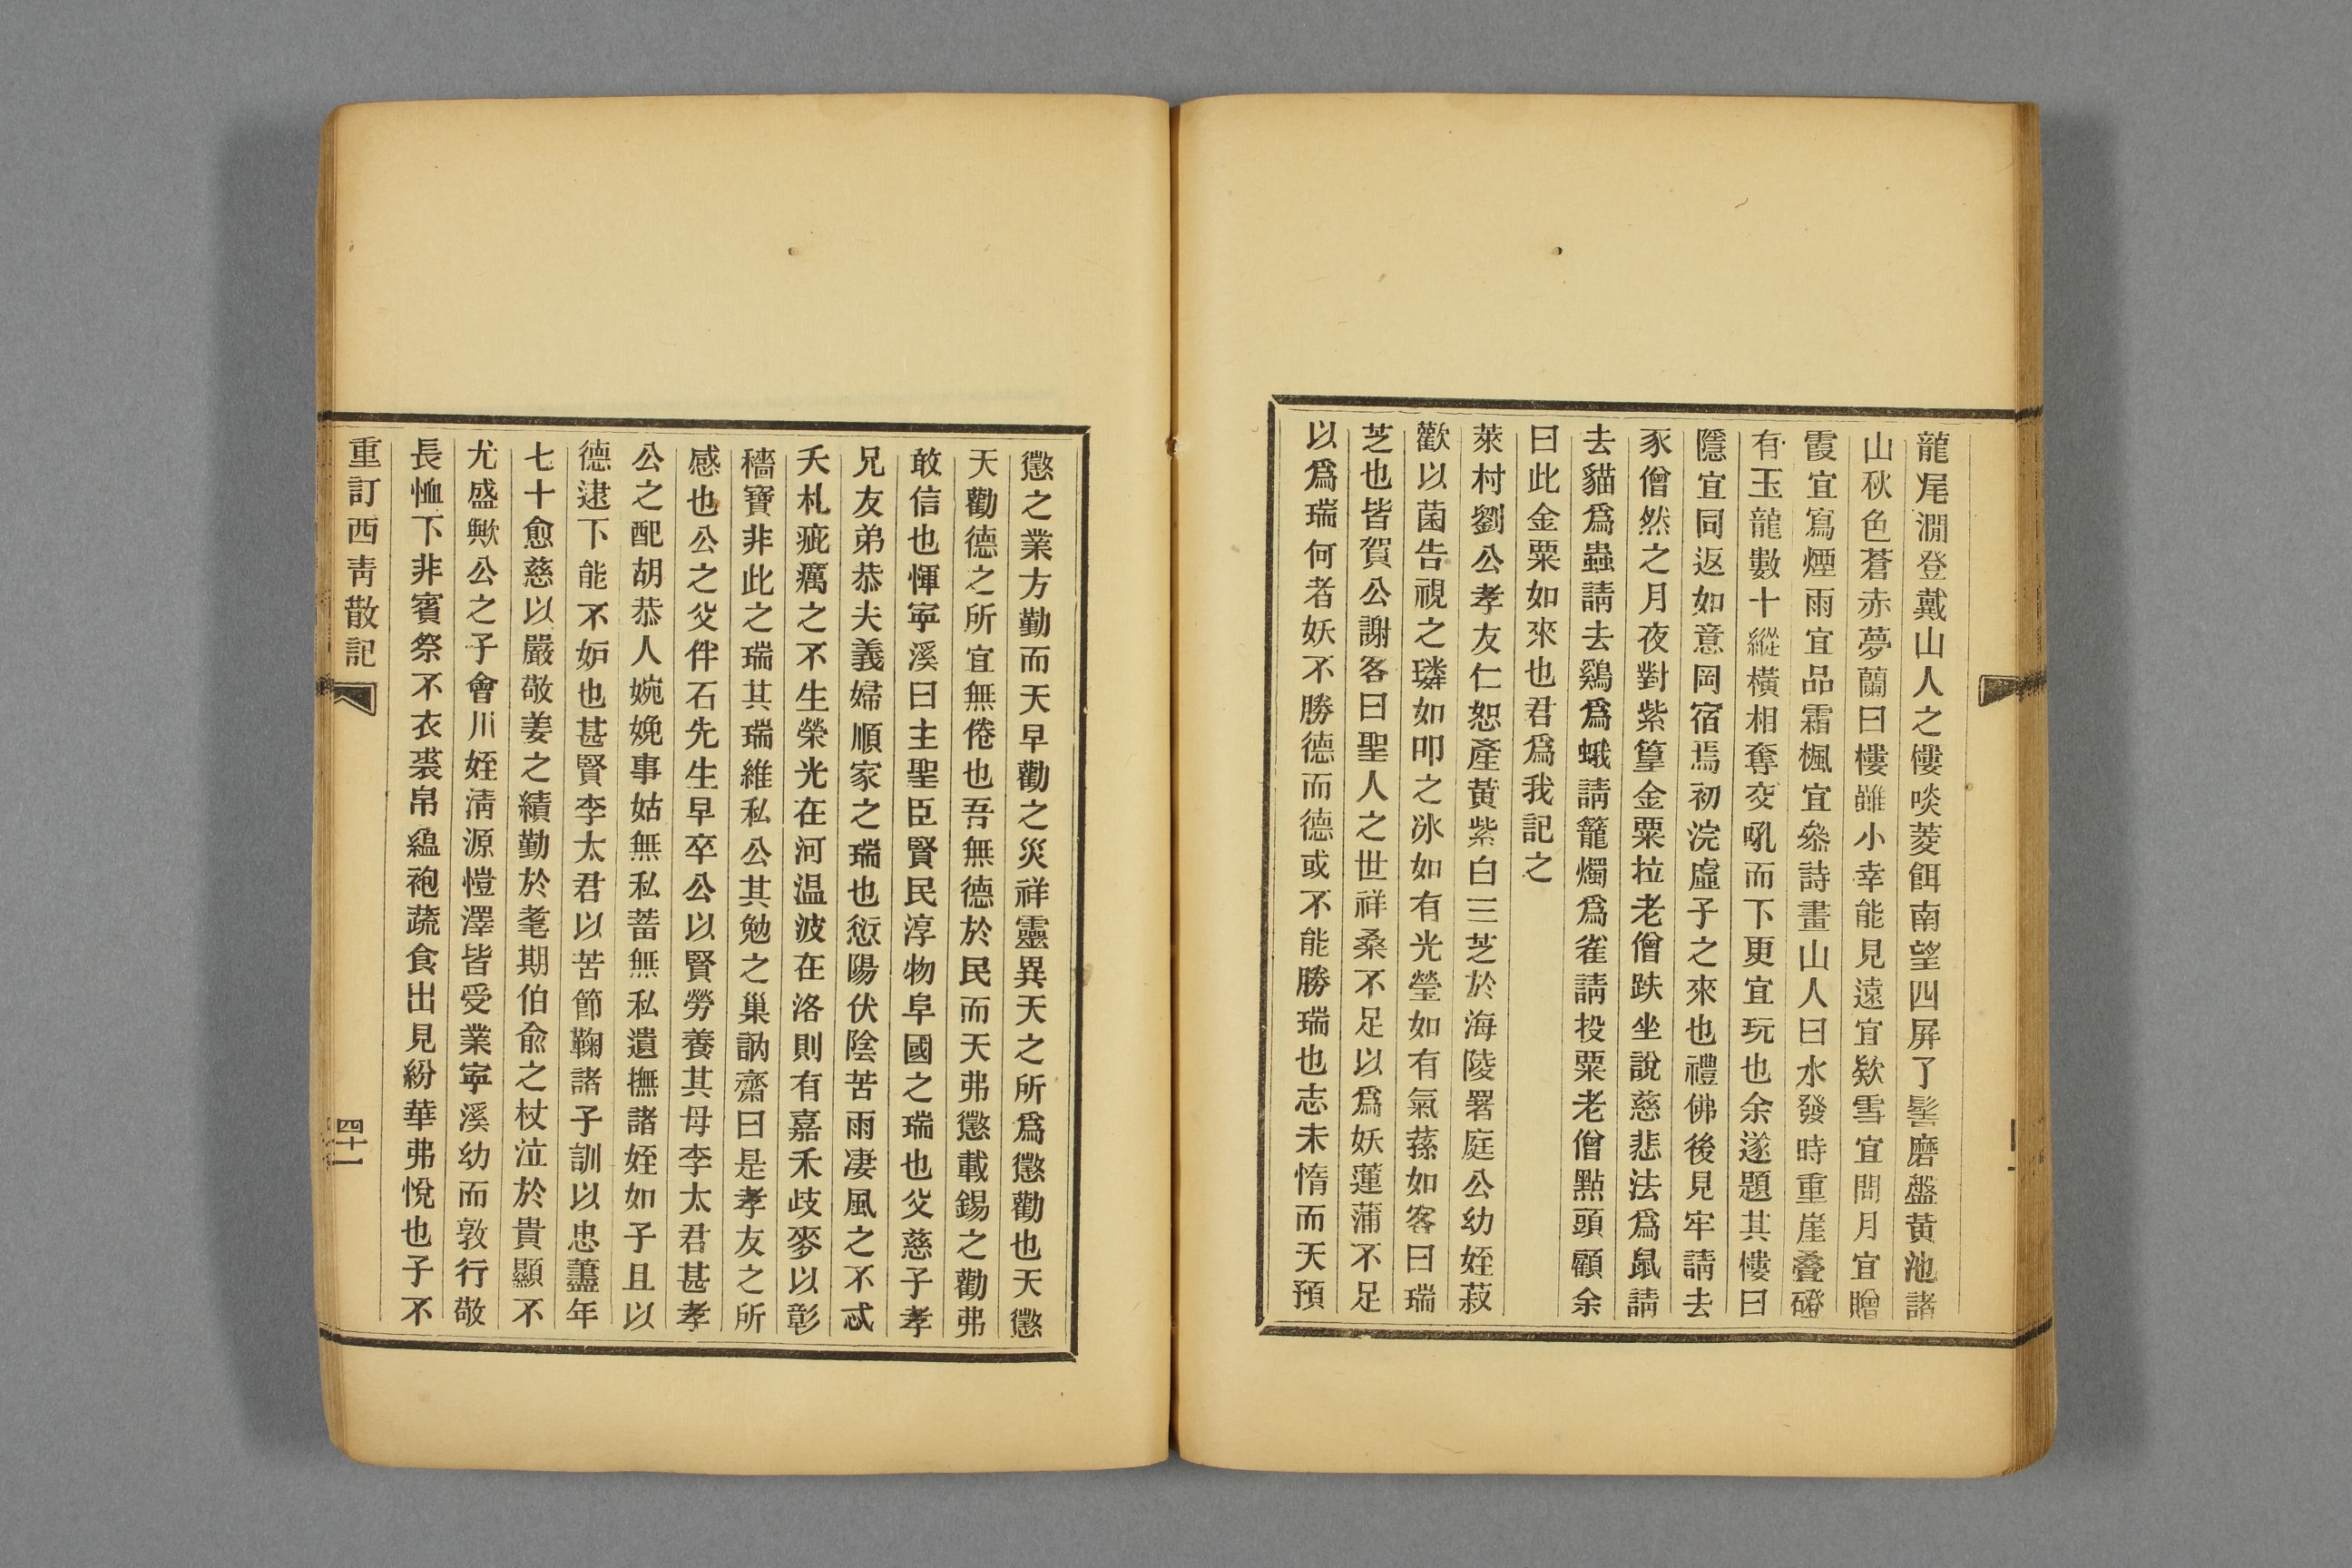 龍尾澗登戴山人之僂啖菱餌南望四屏了髻磨盤黃池諸
山秋色蒼赤夢蘭曰樓雖小幸能見遠宜欵雪宜問月宜贈
霞宜寫煙雨宜品霜楓宜叅詩畫山人曰水發時重崖疊磴
有玉龍數十縱橫相奪交吼而下更宜玩也余遂題其樓曰
隱宜同返如意岡宿焉初浣虛子之來也禮佛後見牢請去
豕僧然之月夜對紫篁金粟拉老僧趺坐說慈悲法爲鼠請
去貓爲蟲請去鷄爲蛾請籠燭爲雀請投粟老僧點頭顧余
曰此金粟如來也君爲我記之
萊村劉公孝友仁恕產黃紫白三芝於海陵署庭公幼姪菽
歡以菌告視之璘如叩之冰如有光瑩如有氣蓀如客曰瑞
芝也皆賀公謝客曰聖人之世祥桑不足以爲妖蓮蒲不足
以爲瑞何者妖不勝德而德或不能勝瑞也志未惰而天預
懲之業方勤而天早勸之災祥靈異天之所爲懲勸也天懲
天勸德之所宜無倦也吾無德於民而天弗懲載錫之勸弗
敢信也惲寧溪曰主聖臣賢民淳物阜國之瑞也父慈子孝
兄友弟恭夫義婦順家之瑞也愆陽伏陰苦雨凄風之不忒
夭札疵癘之不生榮光在河温波在洛則有嘉禾歧麥以彰
穡寶非此之瑞其瑞維私公其勉之巢訥齋曰是孝友之所
感也公之父伴石先生早卒公以賢勞養其母李太君甚孝
公之配胡恭人婉娩事姑無私蓄無私遺撫諸姪如子且以
德逮下能不妒也甚賢李太君以苦節鞠諸子訓以忠藎年
七十愈慈以嚴敬姜之績勤於耄期伯兪之杖泣於貴顯不
尤盛歟公之子會川姪淸源愷澤皆受業寧溪幼而敦行敬
長恤下非賓祭不衣裘帛縕袍蔬食出見紛華弗悅也子不
重訂西靑散記
四十一